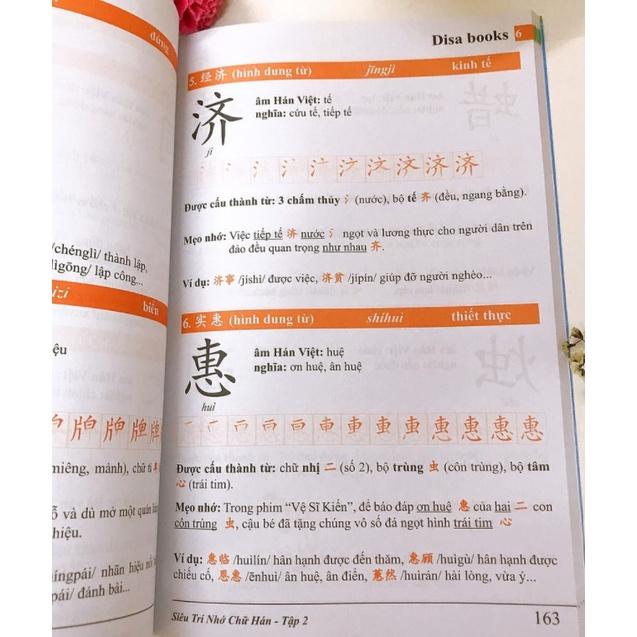 đứng
/chénglì/ thành lập,
lìgōng/ lập công...
biển
iệu
牌 牌 牌
miêng, mảnh), chữ tì 卑
ỗ và dù mở một quán
hiệu.
íngpái/ nhãn hiệu nổi
pái/ đánh bài...
Disa books 6
5. 经济 (hình dung từ) jīngjì kinh tế
济
jì
âm Hán Việt: tế
nghĩa: cứu tế, tiếp tế
Được cấu thành từ: 3 chấm thủy 氵 (nước), bộ tế 齐 (đều, ngang bằng).
Mẹo nhớ: Việc tiếp tế 济 nước 氵 ngọt và lương thực cho người dân trên
đảo đều quan trọng như nhau 齐.
Ví dụ: 济事 /jìshì/ được việc, 济贫 /jìpín/ giúp đỡ người nghèo...
6. 实惠 (hình dung từ) shíhuì thiết thực
惠
huì
âm Hán Việt: huệ
nghĩa: ơn huệ, ân huệ
Được cấu thành từ: chữ nhị 二 (số 2), bộ trùng 虫 (côn trùng), bộ tâm
心 (trái tim).
Mẹo nhớ: Trong phim “Vệ Sĩ Kiến”, để báo đáp ơn huệ 惠 của hai 二 con
côn trùng 虫, cậu bé đã tặng chúng vô số đá ngọt hình trái tim 心
Ví dụ: 惠临 /huìlín/ hân hạnh được đến thăm, 惠顾 /huìgù/ hân hạnh được
chiếu cố, 恩惠 /ēnhuì/ ân huệ, ân điển, 蕙然 /huìrán/ hài lòng, vừa ý...
Siêu Trí Nhớ Chữ Hán - Tập 2 163